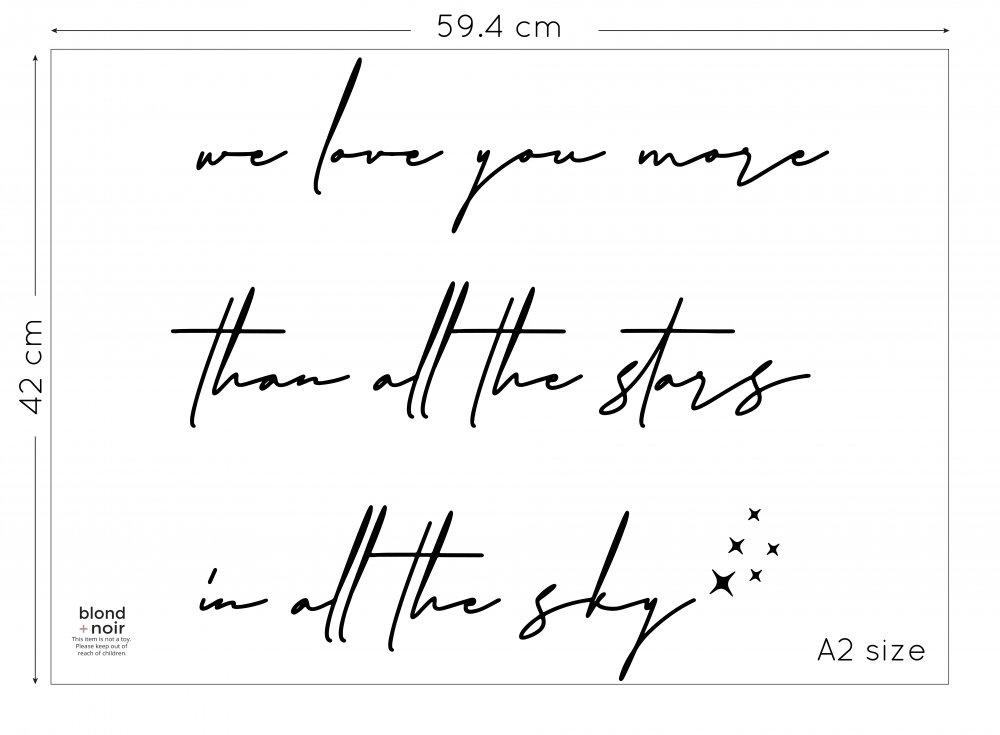 59.4 cm
42 cm
we love you more
than all the stars
in all the sky
blond
+ noir
This item is not a toy.
Please keep out of
reach of children.
A2 size